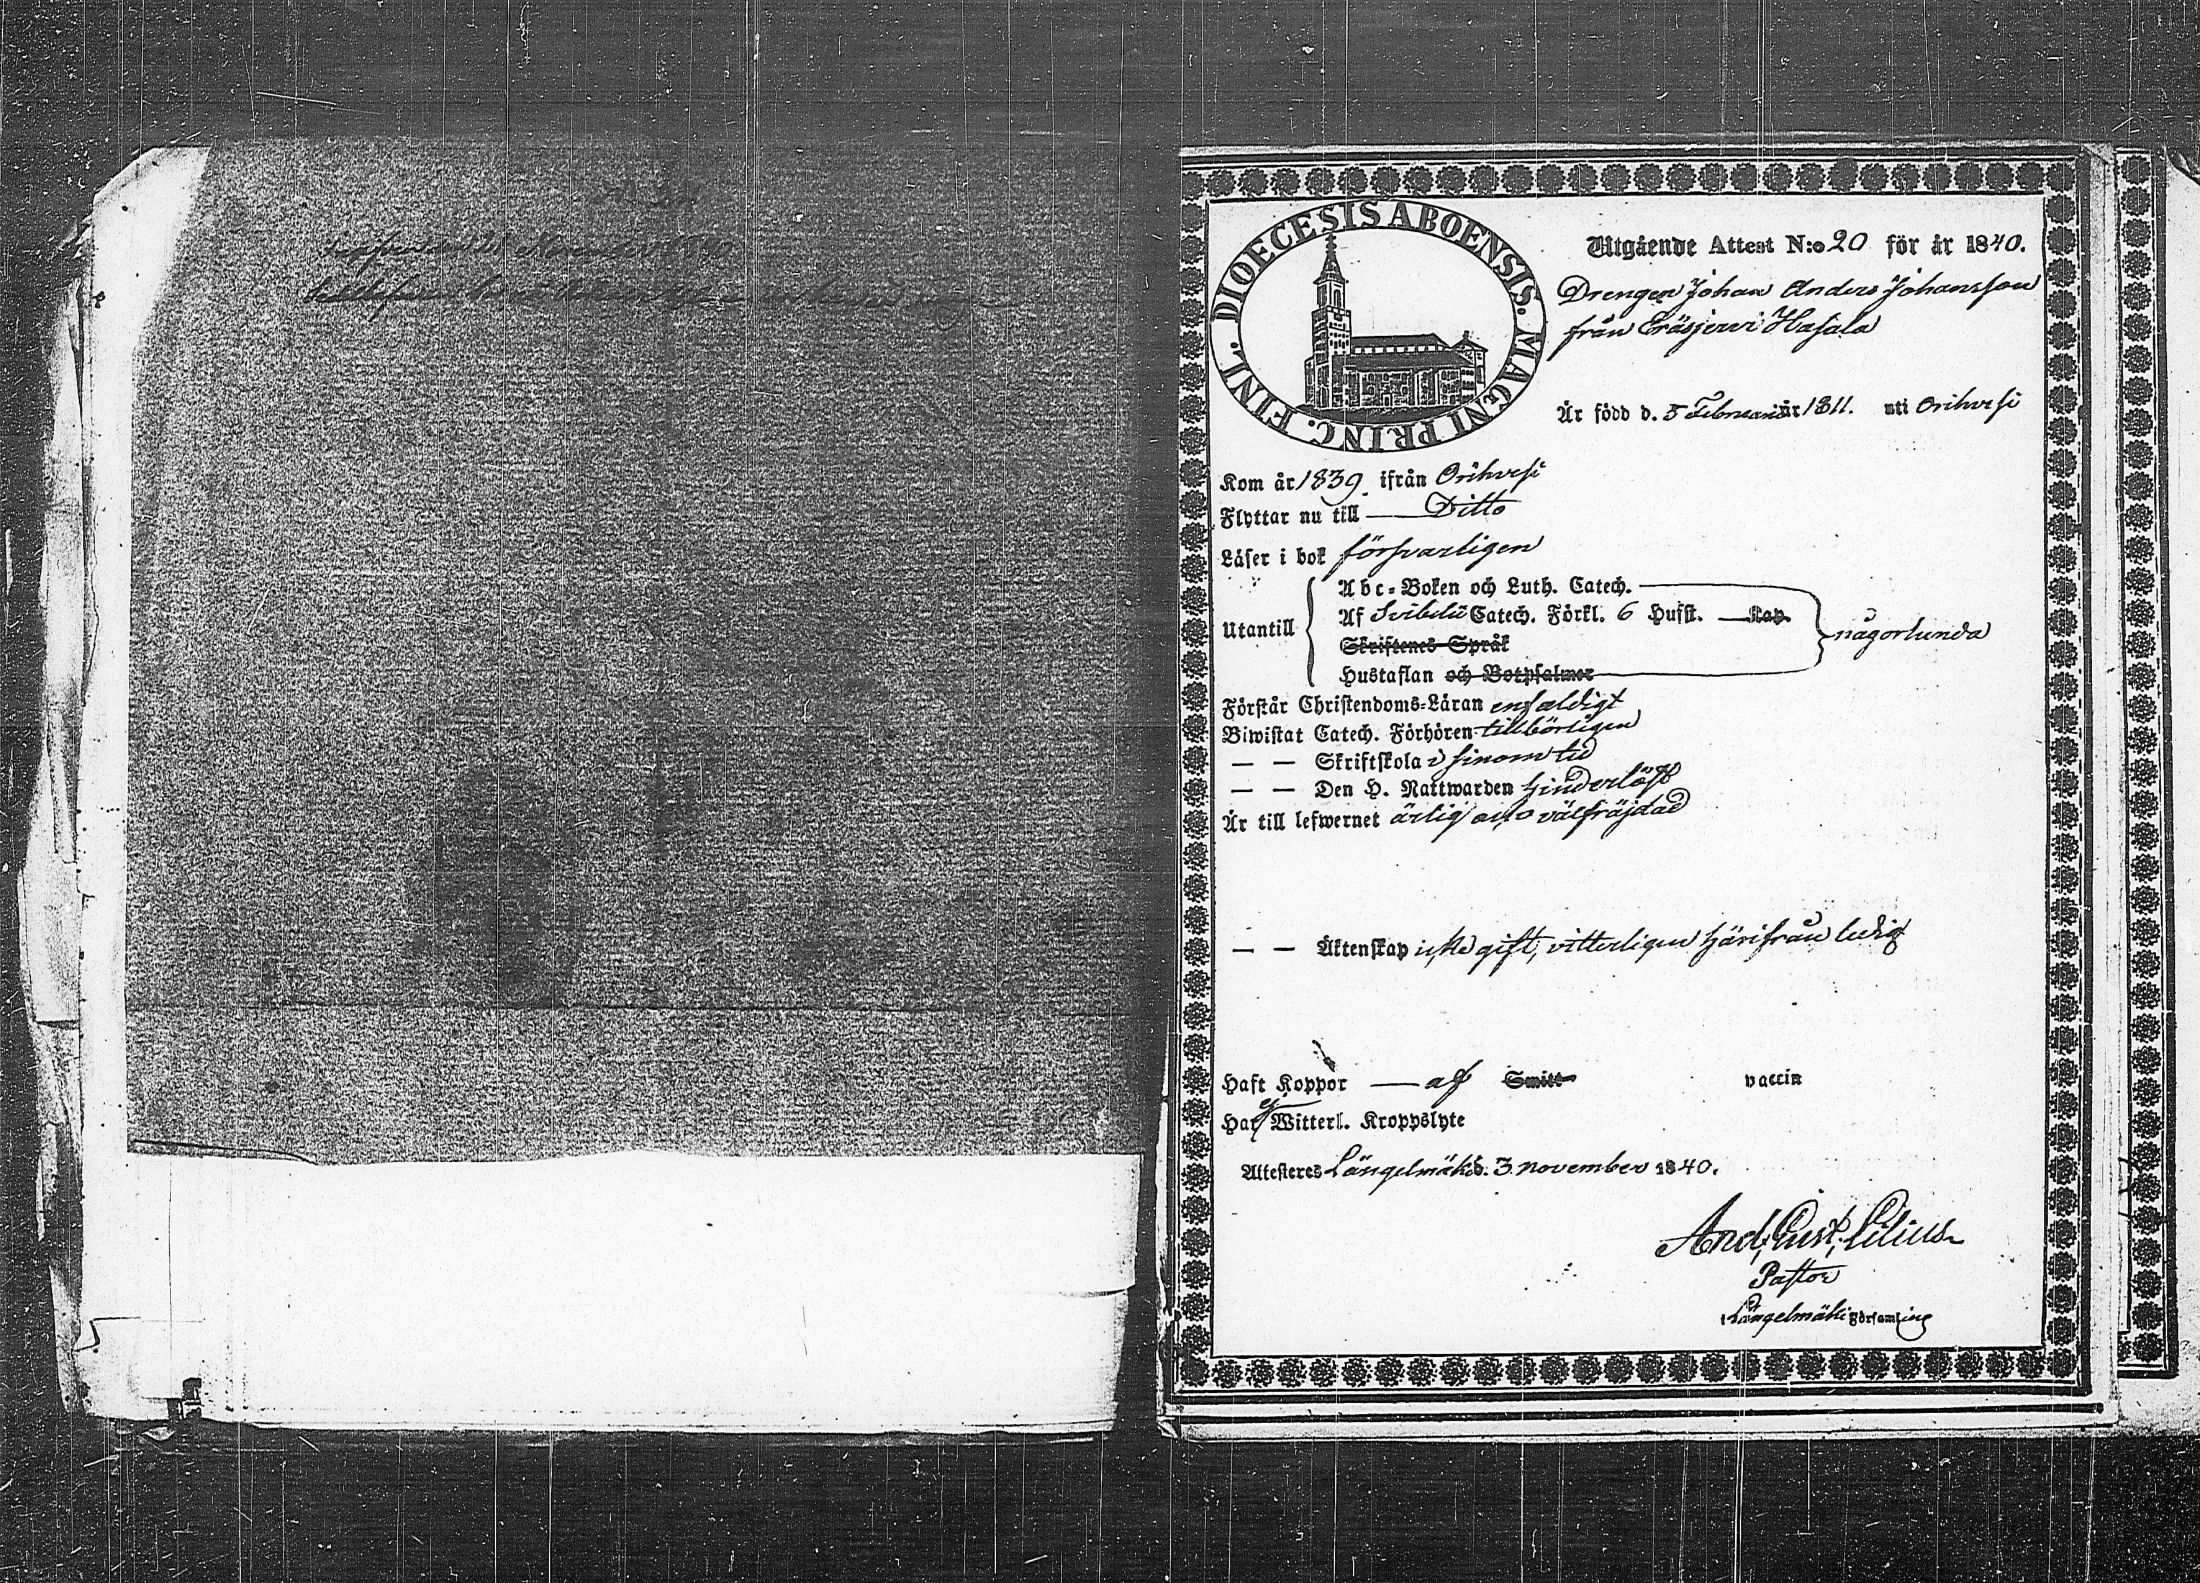 DIOECESIS ABOENSIS. MAGNI PRINC. FINL.
Utgående Attest N:o 20 för år 1840.
Drengen Johan Anders Johansson
från Eräsjervi Hasala
Är född d. 5 Februari år 1811. uti Orihvesi
Kom år 1839 ifrån Orihvesi
Flyttar nu till — Ditto
Läser i bok försvarligen
Utantill
Abc-Boken och Luth. Catech.
Af Svibelii Catech. Förkl. 6 Hufst. — Kap.
Skriftenes Språk
Hustaflan och Botpsalmer
någorlunda
Förstår Christendoms-Läran enfaldigt
Biwistat Catech. Förhören tillbörligen
— — Skriftskola i sinom tid
— — Den H. Nattwarden hinderlöst
Är till lefwernet ärlig och välfräjdad
— — Äktenskap icke gift, vitterligen härifrån ledig
Haft Koppor — af Smitt vaccin
Har ej Witterl. Kroppslyte
Attesteras Längelmäki d. 3 november 1840.
And. Gust. Lilius
Pastor
i Längelmäki Församling